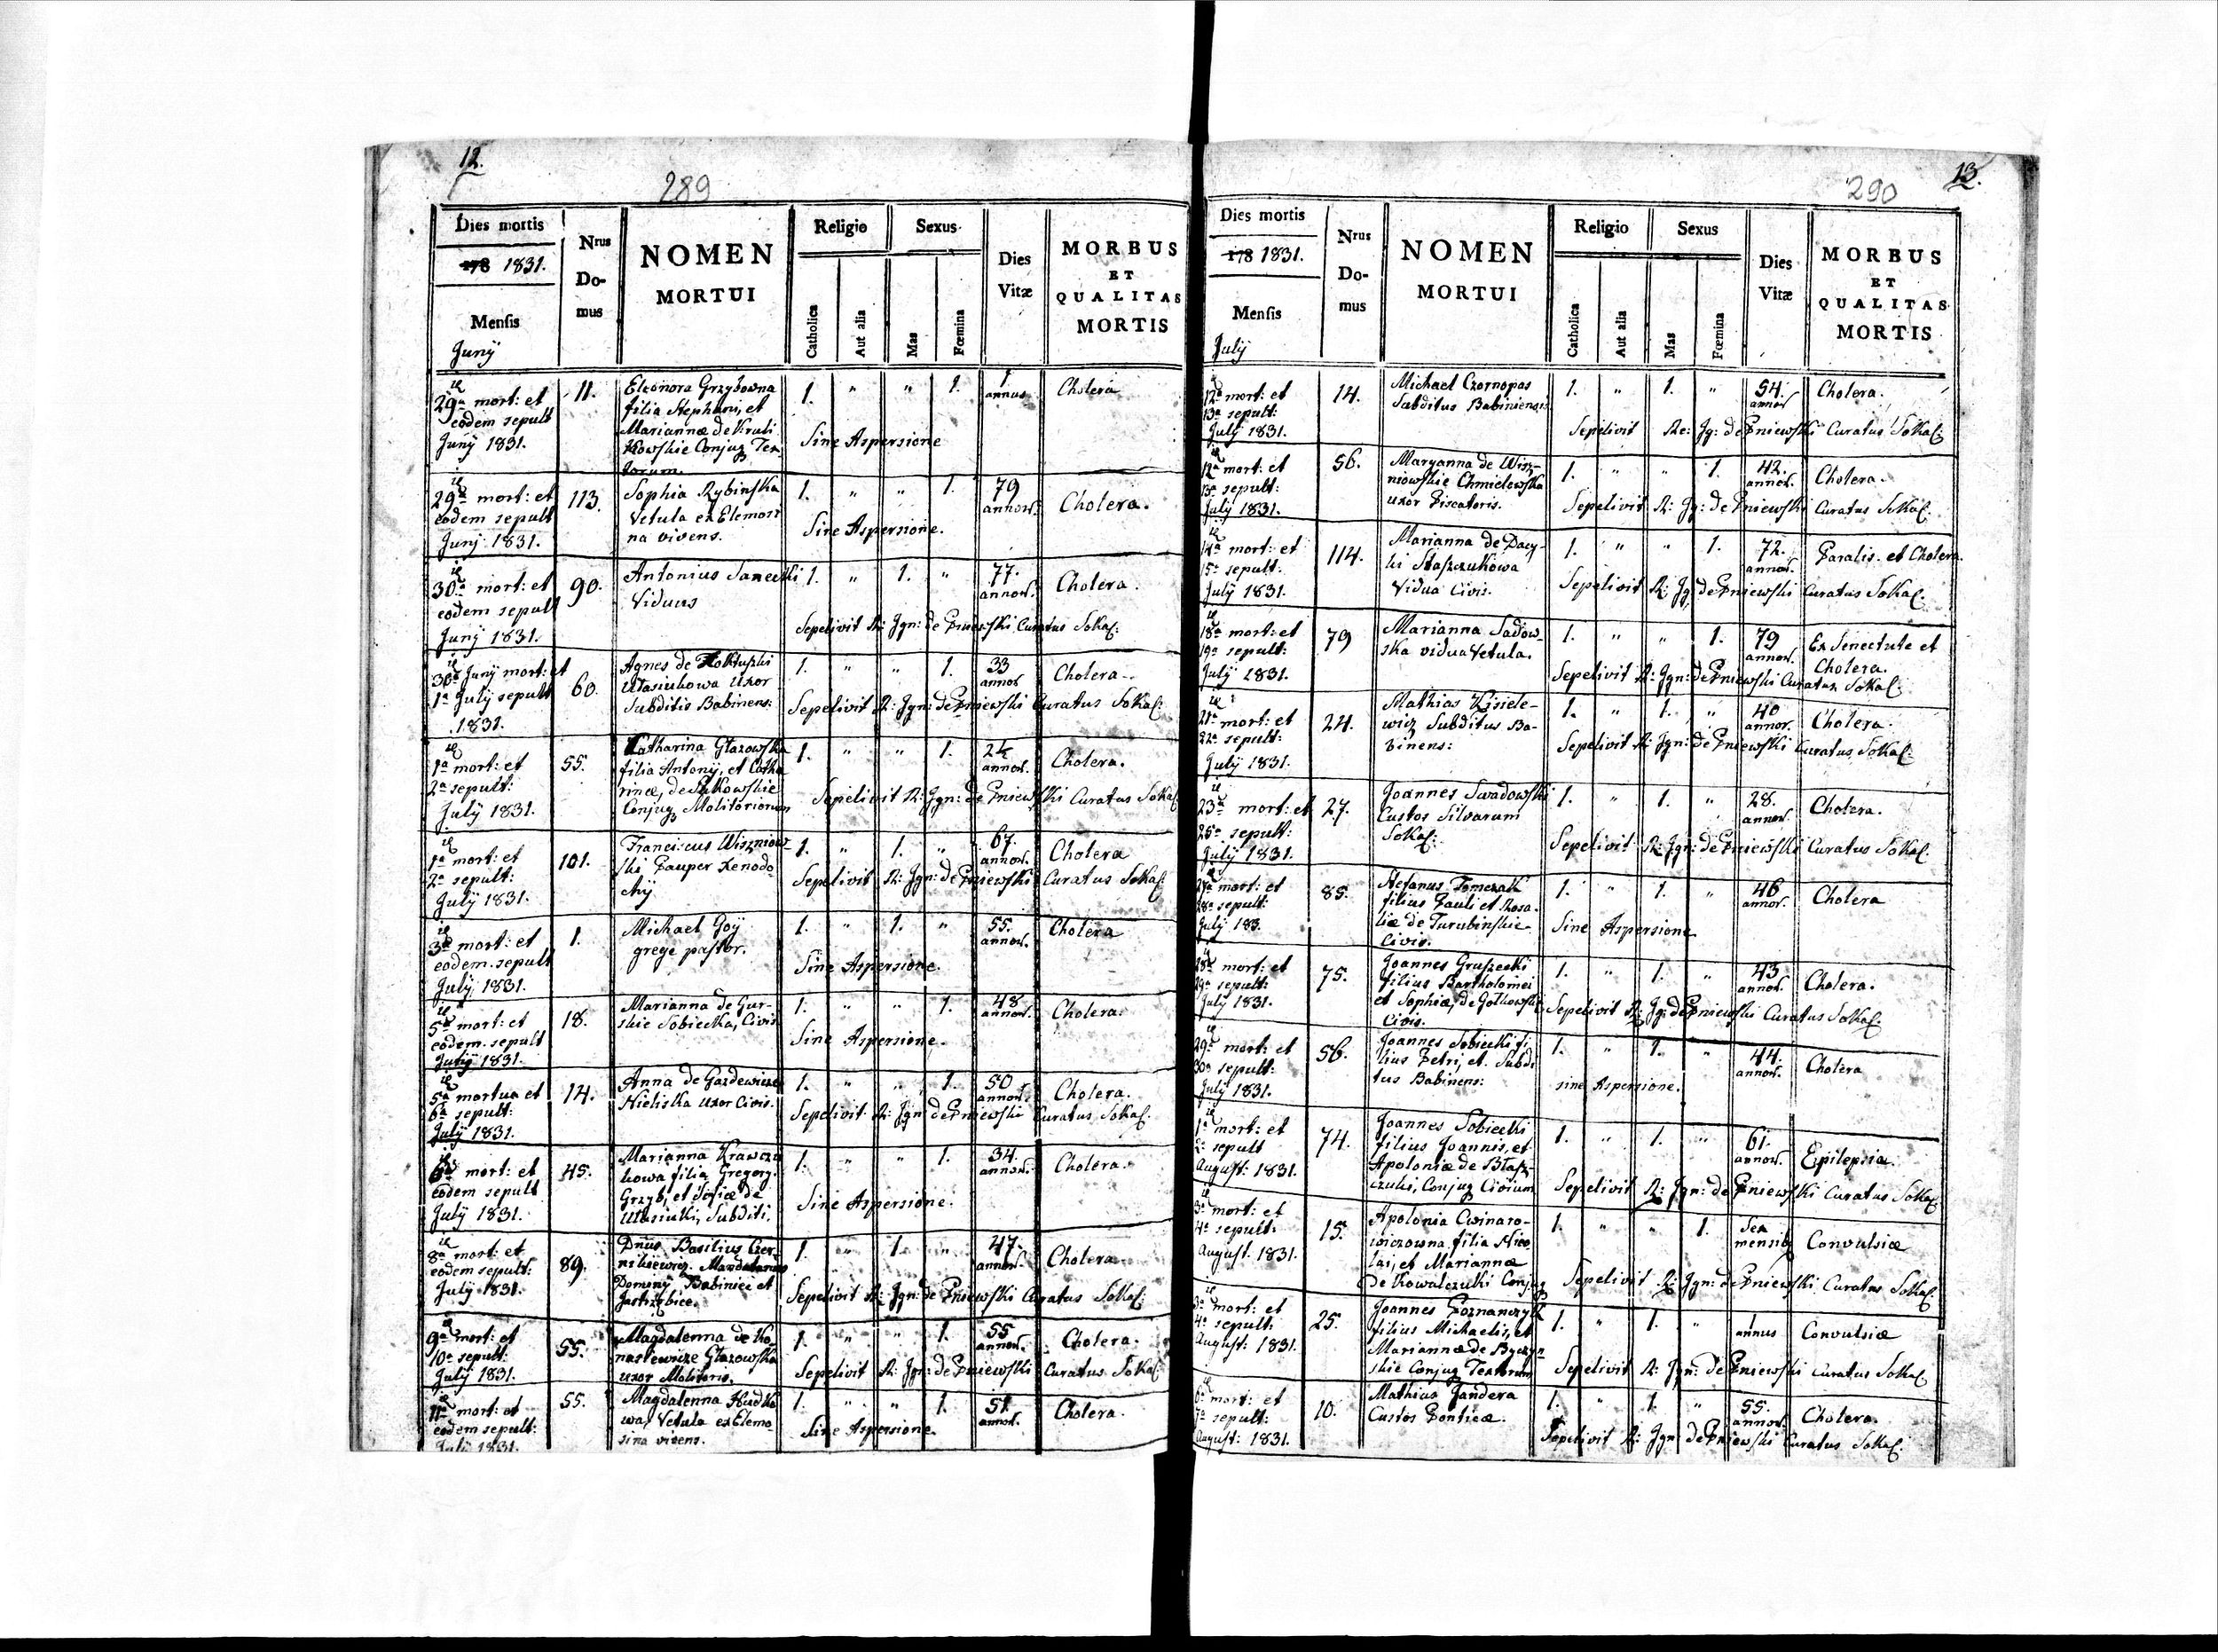 12.
289
Dies mortis
178 1831.
Mensis
Junÿ
Nrus
Do-
mus
NOMEN
MORTUI
Religio
Catholica
Aut alia
Sexus
Mas
Fœmina
Dies
Vitæ
MORBUS
ET
QUALITAS
MORTIS
29a mort: et
eodem sepult
Junÿ 1831.
11.
Eleonora Grzybowna
filia Stephani, et
Mariannæ de Kruli
kowskie Conjug Tex
torum.
1. " " 1.
1
annus
Cholera
Sine Aspersione
29a mort: et
eodem sepult
Junÿ 1831.
113.
Sophia Rybinska
Vetula ex Elemosi
na vivens.
1. " " 1.
79
annor.
Cholera.
Sine Aspersione.
30a mort: et
eodem sepult
Junÿ 1831.
90.
Antonius Sanecki
Viduus
1. " 1. "
77.
annor.
Cholera.
Sepelivit R: Jgn: de Pniewski Curatus Sokal:
30a Junÿ mort: et
1a Julÿ sepult
1831.
60.
Agnes de
Utasiukowa Uxor
Subditis Babinens:
1. " " 1.
33
annor.
Cholera.
Sepelivit R: Jgn: de Pniewski Curatus Sokal:
1a mort: et
2a sepult:
Julÿ 1831.
55.
Katharina Głazowska
filia Antonÿ, et Catha
rinæ,
Conjug Molitorum
1. " " 1.
24
annor.
Cholera.
Sepelivit R: Jgn: de Pniewski Curatus Sokal:
1a mort: et
2a sepult:
Julÿ 1831.
101.
Franciscus Wiszniow-
ski Pauper Xenodo
chÿ
1. " 1. "
67.
annor.
Cholera
Sepelivit R: Jgn: de Pniewski Curatus Sokal:
3a mort: et
eodem sepult
Julÿ 1831.
1.
Michael Goÿ
grege pastor.
1. " 1. "
55.
annor.
Cholera
Sine Aspersione.
5a mort: et
eodem sepult
Julÿ 1831.
18.
Marianna de Gur-
skie Sobiecka, Civis
1. " " 1.
48
annor.
Cholera.
Sine Aspersione.
5a mortua et
6a sepult:
Julÿ 1831.
14.
Anna de Gazdewicze
Nieliska uxor Civis.
1. " " 1.
50
annor.
Cholera.
Sepelivit R: Jgn: de Pniewski Curatus Sokal:
6a mort: et
eodem sepult
Julÿ 1831.
45.
Marianna Krawczu
kowa filia Gregorÿ.
Grzyb, et Sofiæ de
Utasiuki, Subditi.
1. " " 1.
34.
annor.
Cholera.
Sine Aspersione.
8a mort: et
eodem sepult:
Julÿ 1831.
89.
Dnus Basilius Czer-
nikiewicz.
Dominÿ Babiniei et
Jastrzębice.
1. " 1. "
47.
annor.
Cholera
Sepelivit R: Jgn: de Pniewski Curatus Sokal:
9a mort: et
10a sepult:
Julÿ 1831.
55.
Magdalenna de Ko-
nasiewicze Głazowska
uxor Molitoris.
1. " " 1.
55
annor.
Cholera.
Sepelivit R: Jgn: de Pniewski Curatus Sokal:
11a mort: et
eodem sepult:
Julÿ 1831.
55.
Magdalenna Hudko
wa, Vetula ex Elemo-
sina vivens.
1. " " 1.
51.
annor.
Cholera.
Sine Aspersione.
13.
290
Dies mortis
178 1831.
Mensis
Julÿ
Nrus
Do-
mus
NOMEN
MORTUI
Religio
Catholica
Aut alia
Sexus
Mas
Fœmina
Dies
Vitæ
MORBUS
ET
QUALITAS
MORTIS
12a mort: et
13a sepult:
Julÿ 1831.
14.
Michael Czornopas
Subditus Babiniensis
1. " 1. "
54.
annor
Cholera.
Sepelivit Re: Jg: de Pniewski Curatus Sokal:
12a mort: et
13a sepult:
Julÿ 1831.
56.
Maryanna de Wisz-
niowskie Chmielewska
uxor Piscatoris.
1. " " 1.
42.
annor.
Cholera.
Sepelivit R: Jg: de Pniewski Curatus Sokal:
14a mort: et
15a sepult:
Julÿ 1831.
114.
Marianna de Dacy-
ki Staszczukowa
Vidua Civis.
1. " " 1.
72.
annor.
Paralis. et Cholera.
Sepelivit R: Jg: de Pniewski Curatus Sokal:
18a mort: et
19a sepult:
Julÿ 1831.
79
Marianna Sadow-
ska vidua Vetula.
1. " " 1.
79
annor.
Ex Senectute et
Cholera.
Sepelivit R: Jgn: de Pniewski Curatus Sokal:
21a mort: et
22a sepult:
Julÿ 1831.
24.
Mathias Kisiele-
wicz Subditus Ba-
binens:
1. " 1. "
40
annor.
Cholera.
Sepelivit R: Jgn: de Pniewski Curatus Sokal:
23a mort: et
25a sepult:
Julÿ 1831.
27.
Joannes Swadowski
Custos Silvarum
Sokal:
1. " 1. "
28.
annor.
Cholera.
Sepelivit R: Jgn: de Pniewski Curatus Sokal:
27a mort: et
28a sepult:
Julÿ 183.
85.
Stefanus Tomczak
filius Pauli et Rosa-
liæ de Turubinskie
Civis.
1. " 1. "
46
annor.
Cholera
Sine Aspersione
28a mort: et
29a sepult:
Julÿ 1831.
75.
Joannes Gruszecki
filius Bartholomei
et Sophiæ, de Gołkowski
Civis.
1. " 1. "
43
annor.
Cholera.
Sepelivit R: Jg: de Pniewski Curatus Sokal:
29a mort: et
30a sepult:
Julÿ 1831.
56.
Joannes Sobiecki fi-
lius Petri, et. Subdi
tus Babinens:
1. " 1. "
44.
annor.
Cholera
sine Aspersione.
1a mort: et
2a sepult
August: 1831.
74.
Joannes Sobiecki
filius Joannis, et
Apoloniæ de Błasz-
czuki, Conjug Civium
1. " 1. "
61.
annor.
Epilepsia.
Sepelivit R: Jgn: de Pniewski Curatus Sokal:
3a mort: et
4a sepult:
August: 1831.
15.
Apolonia Cwinaro-
wiczowna filia Nico
lai, et Marianna
de Kowalczuki Conjug
1. " " 1.
Sex
mensib
Convulsiæ
Sepelivit R: Jgn: de Pniewski Curatus Sokal:
3a mort: et
4a sepult:
August: 1831.
25.
Joannes Poznanczyk
filius Michaelis, et
Mariannæ de Byczyn-
skie Conjug Textorum
1. " 1. "
1
annus
Convulsiæ
Sepelivit R: Jgn: de Pniewski Curatus Sokal:
6a mort: et
7a sepult:
August: 1831.
10.
Mathias Jandera
Custos Ponticæ.
1. " 1. "
55.
annor.
Cholera.
Sepelivit R: Jgn: de Pniewski Curatus Sokal: